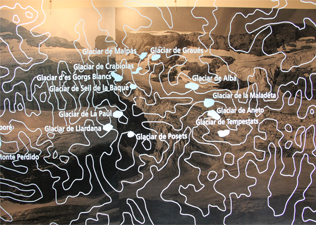 Glaciar de Maipas
Glaciar de Graués
Glaciar de Crabioles
Glaciar d'es Gorgs Blancs
Glaciar de Seil de la Baque
Glaciar de Alba
Glaciar de la Maladeta
Glaciar de Aneto
Glaciar de Tempestats
Glaciar de La Paul
Glaciar de Llardana
Glaciar de Posets
Monte Perdido